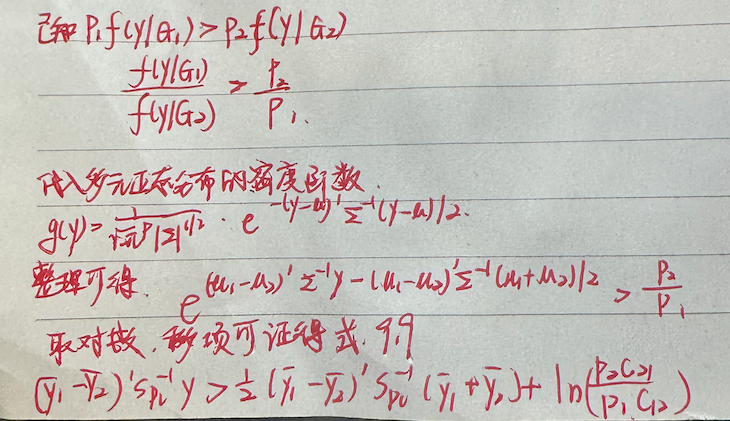 已知 P₁f(y|G₁) > P₂f(y|G₂)
f(y|G₁)/f(y|G₂) > P₂/P₁.
代入多元正态分布的密度函数.
g(y) = 1/(√2π^p |Σ|^{1/2}) · e^{-(y-u)'Σ⁻¹(y-u)/2}.
整理可得. e^{(u₁-u₂)'Σ⁻¹y-(u₁-u₂)'Σ⁻¹(u₁+u₂)/2} > P₂/P₁
取对数,移项可证得式 9.9
(ȳ₁-ȳ₂)'S_{pl}⁻¹y > ½(ȳ₁-ȳ₂)'S_{pl}⁻¹(ȳ₁+ȳ₂)+ln(P₂C₂₁/P₁C₁₂)